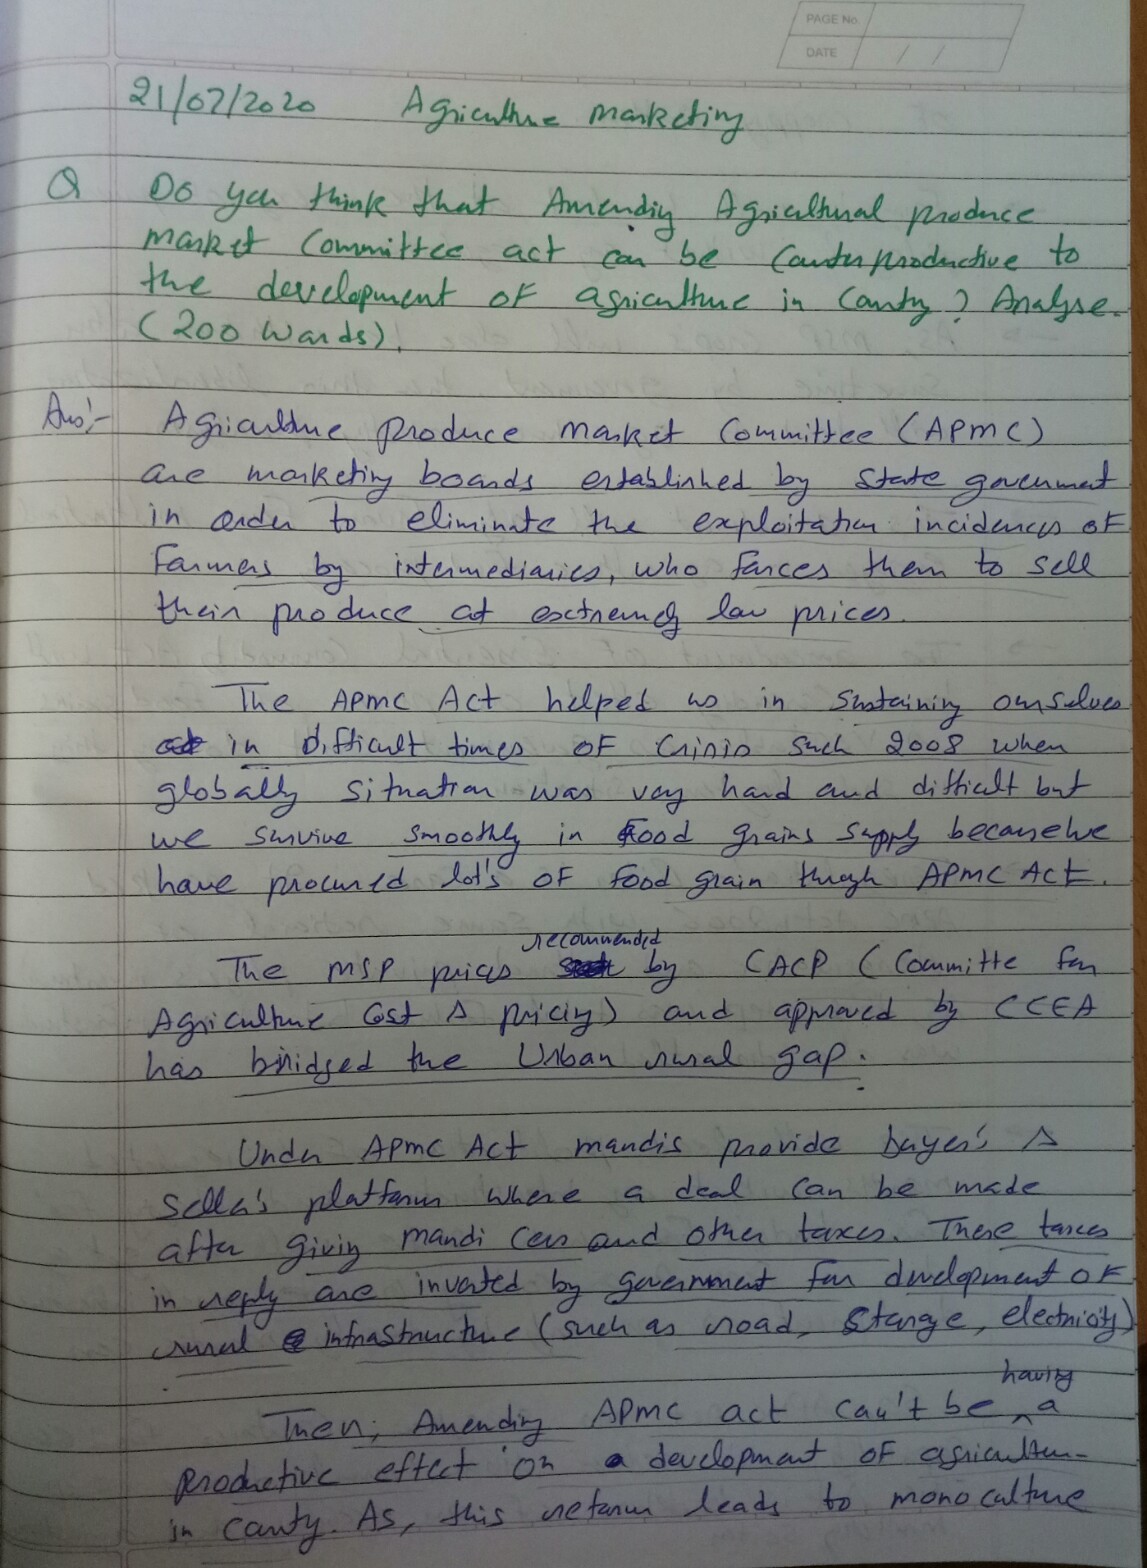 PAGE No.
DATE / /
21/07/2020 Agriculture marketing
Q Do you think that Amending Agricultural produce
market Committee act can be Counterproductive to
the development of agriculture in Country? Analyse.
(200 Words).
Ans:- Agriculture produce market Committee (APMC)
are marketing boards established by State government
in order to eliminate the exploitation incidences of
Farmers by intermediaries, who forces them to sell
their produce at extremely low prices.
The APMC Act helped us in Sustaining ourselves
in difficult times of Crisis such 2008 when
globally situation was very hard and difficult but
we survive smoothly in Food grains supply because we
have procured lot's of food grain through APMC Act.
The MSP prices recommended by CACP (Committe for
Agriculture Cost & pricing) and approved by CCEA
has bridged the Urban rural gap.
Under APMC Act mandis provide buyer's &
Seller's platform where a deal can be made
after giving mandi Cess and other taxes. These taxes
in reply are invested by government for development of
rural infrastructure (such as road, Storage, electricity)
Then, Amending APMC act can't be having a
productive effect on development of agriculture
in Country. As, this reform leads to mono culture